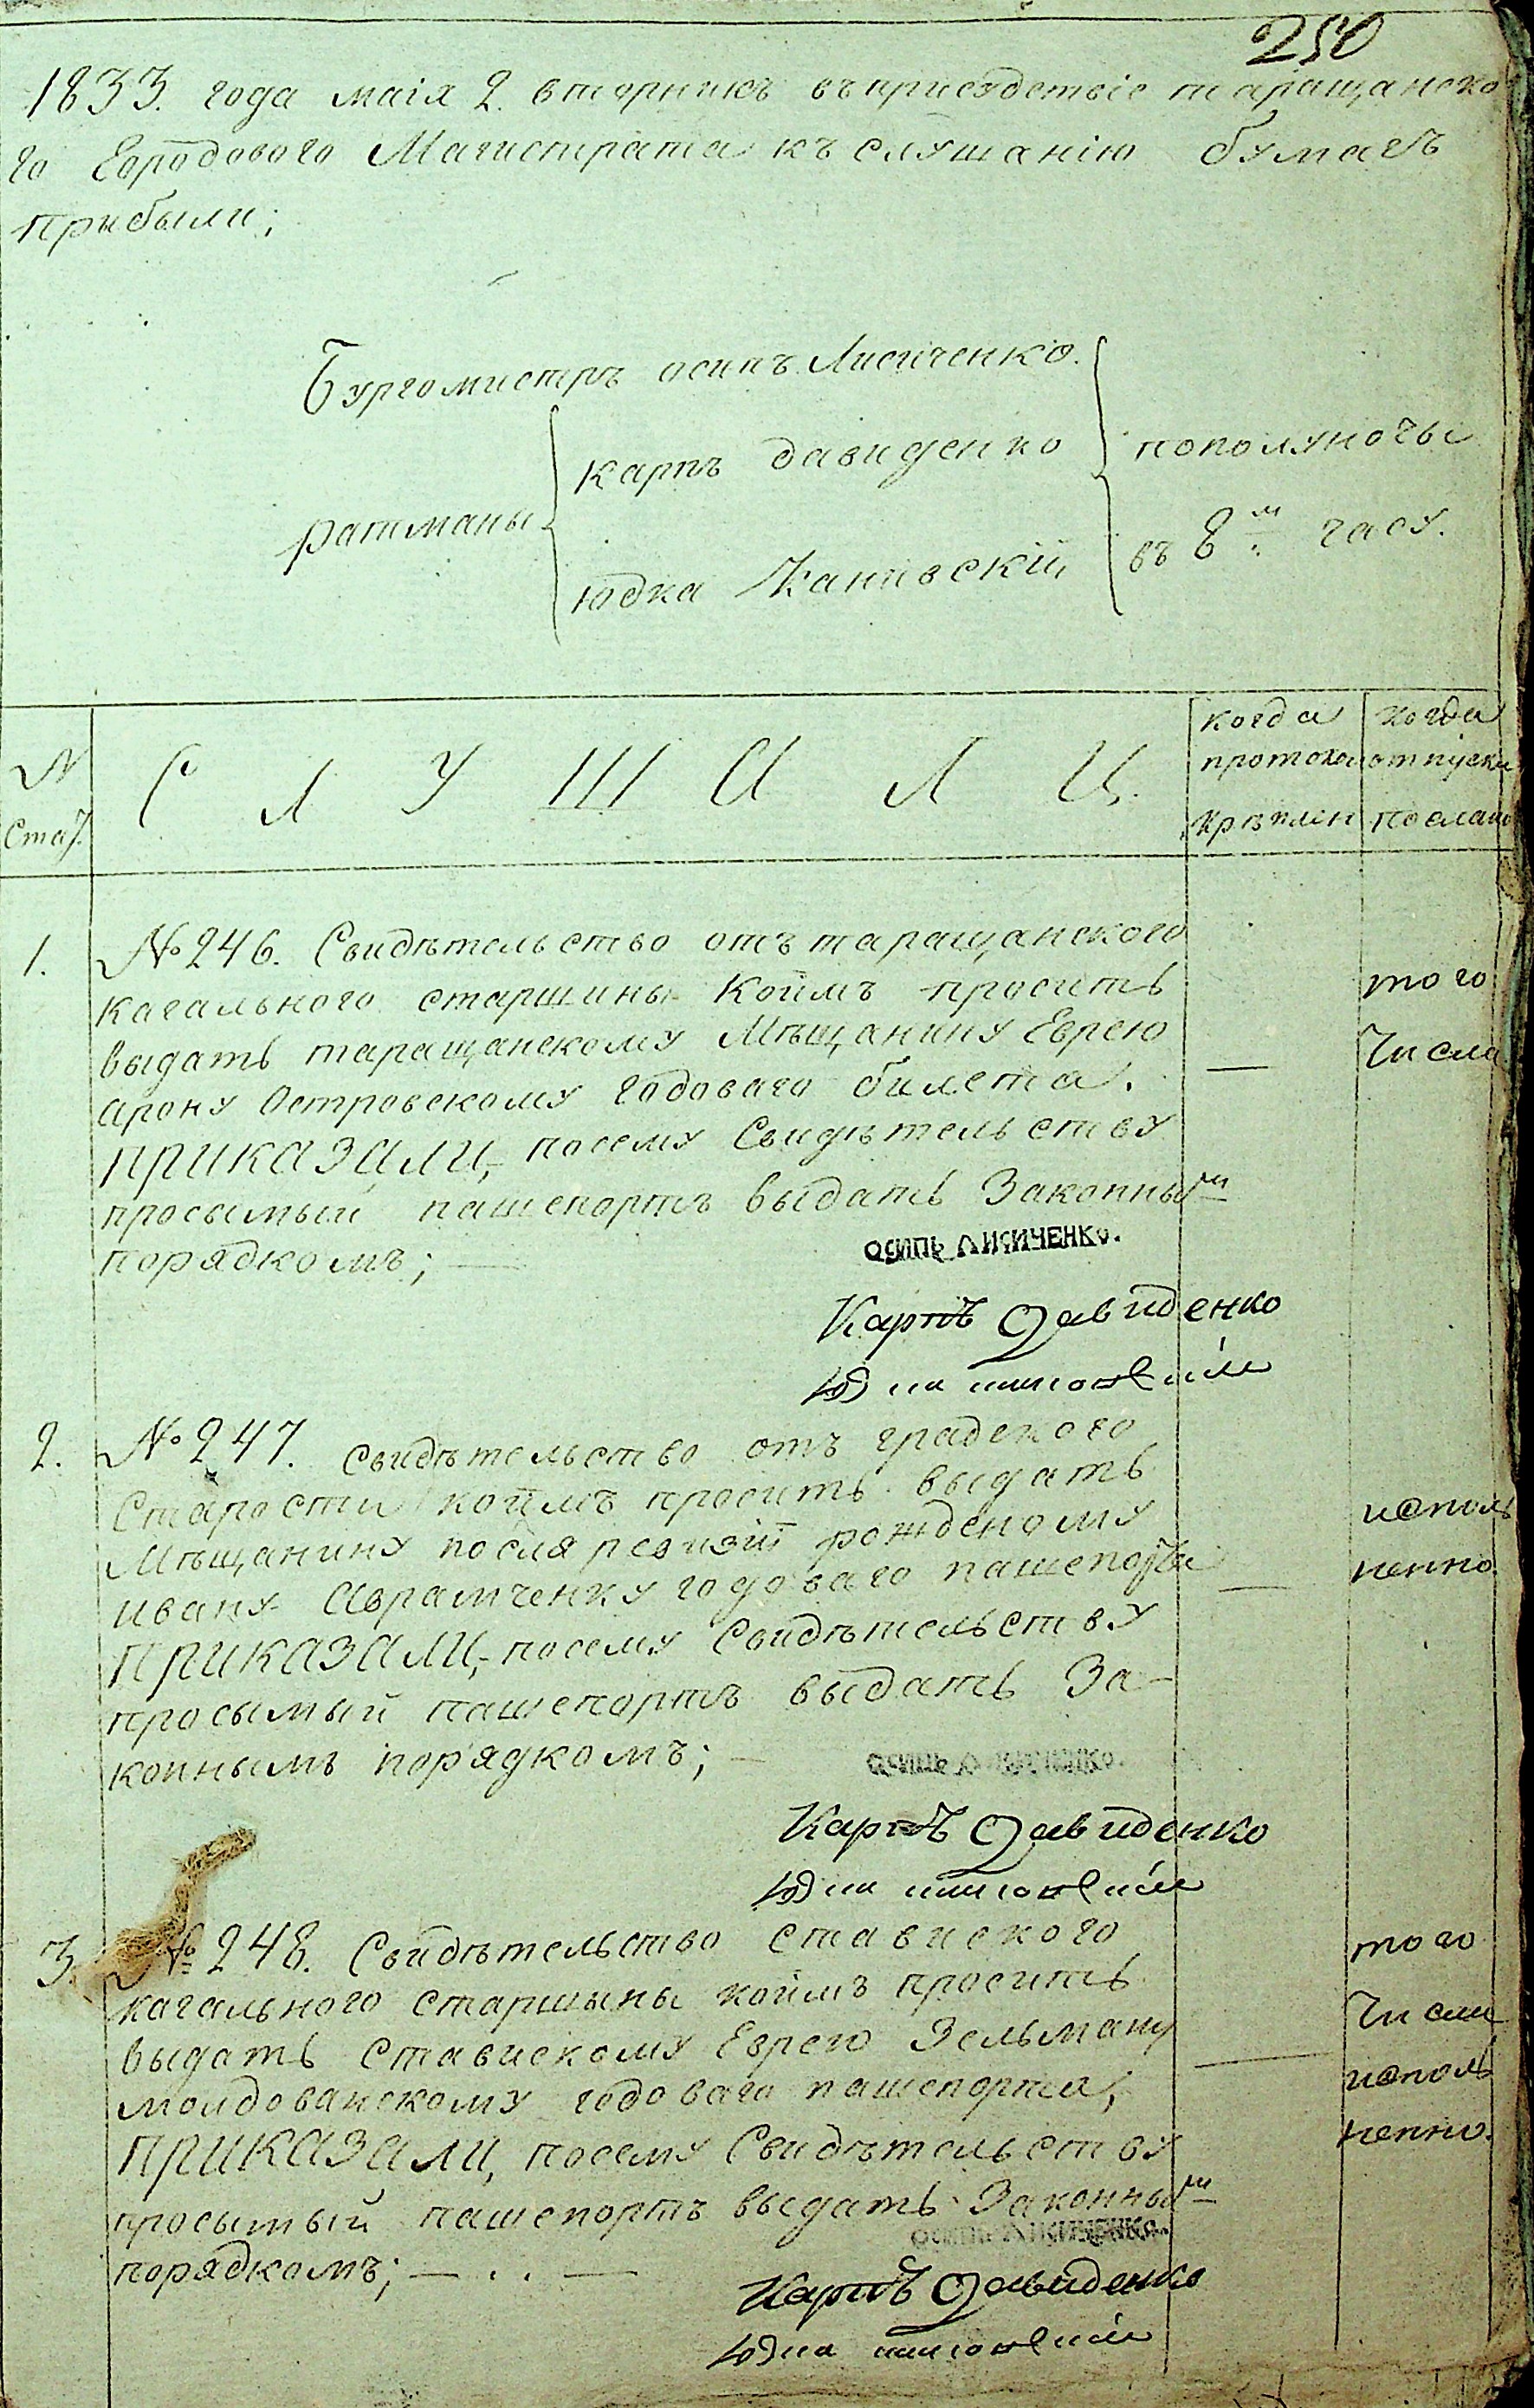 250
1833. года маія 2. вторникъ въ присудствіе таращанско
го Городового Магистрата къ слушанію бумагъ
прибыли;
Бургомистръ осипъ Лисиченко.
ратманы
карпъ давиденко
юдка Каневскій
пополуночы
въ 8м часу.
№
Стат.
СЛУШАЛИ.
когда
протокол
крѣплен
когда
отпуски
посланы
1.
№ 246. Свидѣтельство отъ таращанского
кагального старшины коимъ проситъ
выдать таращанскому Мѣщанину Еврею
арону Островскому годоваго билета.
ПРИКАЗАЛИ, посему Свидѣтельству
просымый пашепортъ выдать Законным
порядкомъ;
того
Числа
осипъ ЛИСИЧЕНКо.
Карпъ Давиденко
2.
№ 247. свидѣтельство отъ градского
Старости коимъ проситъ выдать
Мѣщанину посля ревизіи рожденому
ивану Аврамченку годоваго пашепорта
ПРИКАЗАЛИ, посему Свидѣтельству
просымый пашепортъ выдать За-
коннымъ порядкомъ;
исполь
ненно.
осипъ ЛИСИЧЕНКо.
Карпъ Давиденко
3.
№ 248. Свидѣтельство ставиского
кагального старшыны коимъ проситъ
выдать Ставискому Еврею Зельману
молдованскому годоваго пашепорта;
ПРИКАЗАЛИ, посему Свидѣтельству
просымый пашепортъ выдать Законным
порядкомъ;
того
Числа
исполь
ненно.
осипъ ЛИСИЧЕНКо.
Карпъ Давиденко